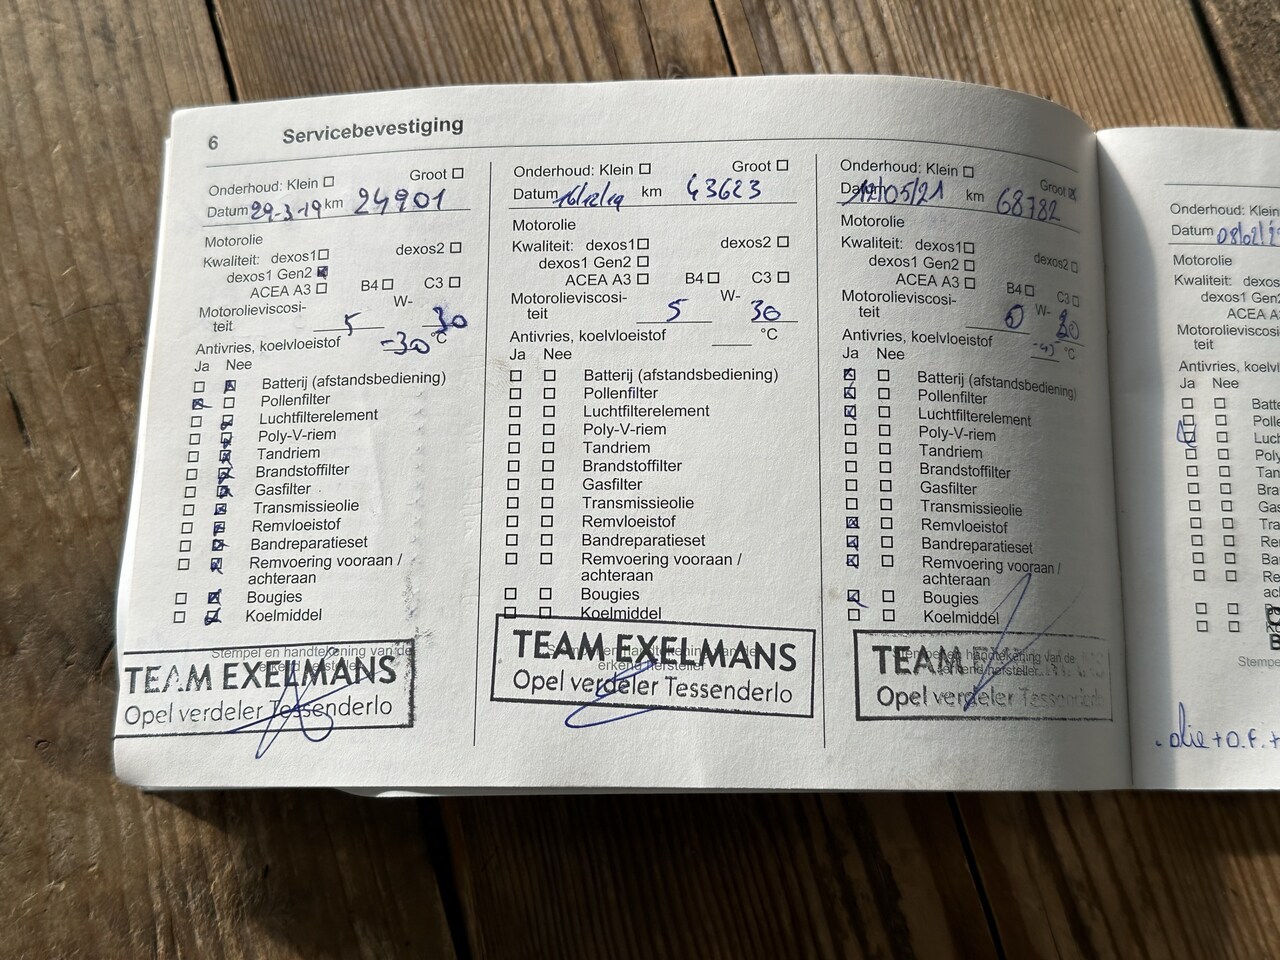 6 Servicebevestiging
Onderhoud: Klein ☐ Groot ☐
Datum 29-3-19 km 24901
Motorolie
Kwaliteit: dexos1 ☐ dexos2 ☐
dexos1 Gen2 ☒
ACEA A3 ☐ B4 ☐ C3 ☐
Motorolieviscosi- W-
teit 5 30
Antivries, koelvloeistof -30 °C
Ja Nee
☐ ☒ Batterij (afstandsbediening)
☒ ☐ Pollenfilter
☐ ☒ Luchtfilterelement
☐ ☒ Poly-V-riem
☐ ☒ Tandriem
☐ ☒ Brandstoffilter
☐ ☒ Gasfilter
☐ ☒ Transmissieolie
☐ ☒ Remvloeistof
☐ ☒ Bandreparatieset
☐ ☒ Remvoering vooraan /
achteraan
☐ ☒ Bougies
☐ ☒ Koelmiddel
Stempel en handtekening van de
erkend hersteller
TEAM EXELMANS
Opel verdeler Tessenderlo
Onderhoud: Klein ☐ Groot ☐
Datum 16/12/19 km 43623
Motorolie
Kwaliteit: dexos1 ☐ dexos2 ☐
dexos1 Gen2 ☐
ACEA A3 ☐ B4 ☐ C3 ☐
Motorolieviscosi- W-
teit 5 30
Antivries, koelvloeistof °C
Ja Nee
☐ ☐ Batterij (afstandsbediening)
☐ ☐ Pollenfilter
☐ ☐ Luchtfilterelement
☐ ☐ Poly-V-riem
☐ ☐ Tandriem
☐ ☐ Brandstoffilter
☐ ☐ Gasfilter
☐ ☐ Transmissieolie
☐ ☐ Remvloeistof
☐ ☐ Bandreparatieset
☐ ☐ Remvoering vooraan /
achteraan
☐ ☐ Bougies
☐ ☐ Koelmiddel
erkend hersteller
TEAM EXELMANS
Opel verdeler Tessenderlo
Onderhoud: Klein ☐ Groot ☒
Datum 12/05/21 km 68782
Motorolie
Kwaliteit: dexos1 ☐ dexos2 ☐
dexos1 Gen2 ☐
ACEA A3 ☐ B4 ☐ C3 ☐
Motorolieviscosi- W-
teit
Antivries, koelvloeistof °C
Ja Nee
☒ ☐ Batterij (afstandsbediening)
☒ ☐ Pollenfilter
☒ ☐ Luchtfilterelement
☐ ☐ Poly-V-riem
☐ ☐ Tandriem
☐ ☐ Brandstoffilter
☐ ☐ Gasfilter
☐ ☐ Transmissieolie
☒ ☐ Remvloeistof
☒ ☐ Bandreparatieset
☒ ☐ Remvoering vooraan /
achteraan
☒ ☐ Bougies
☐ ☐ Koelmiddel
Stempel en handtekening van de
erkend hersteller
TEAM
Opel verdeler Tessenderlo
Onderhoud: Klein
Datum 08/02/2
Motorolie
Kwaliteit: dexos
dexos1 Gen2
ACEA A
Motorolieviscosi
teit
Antivries, koelvl
Ja Nee
☐ ☐ Batte
☐ ☐ Polle
☒ ☐ Luch
☐ ☐ Poly
☐ ☐ Tan
☐ ☐ Bra
☐ ☐ Gas
☐ ☐ Tra
☐ ☐ Re
☐ ☐ Ba
☐ ☐ Re
ac
Stempe
olie + O.F. +